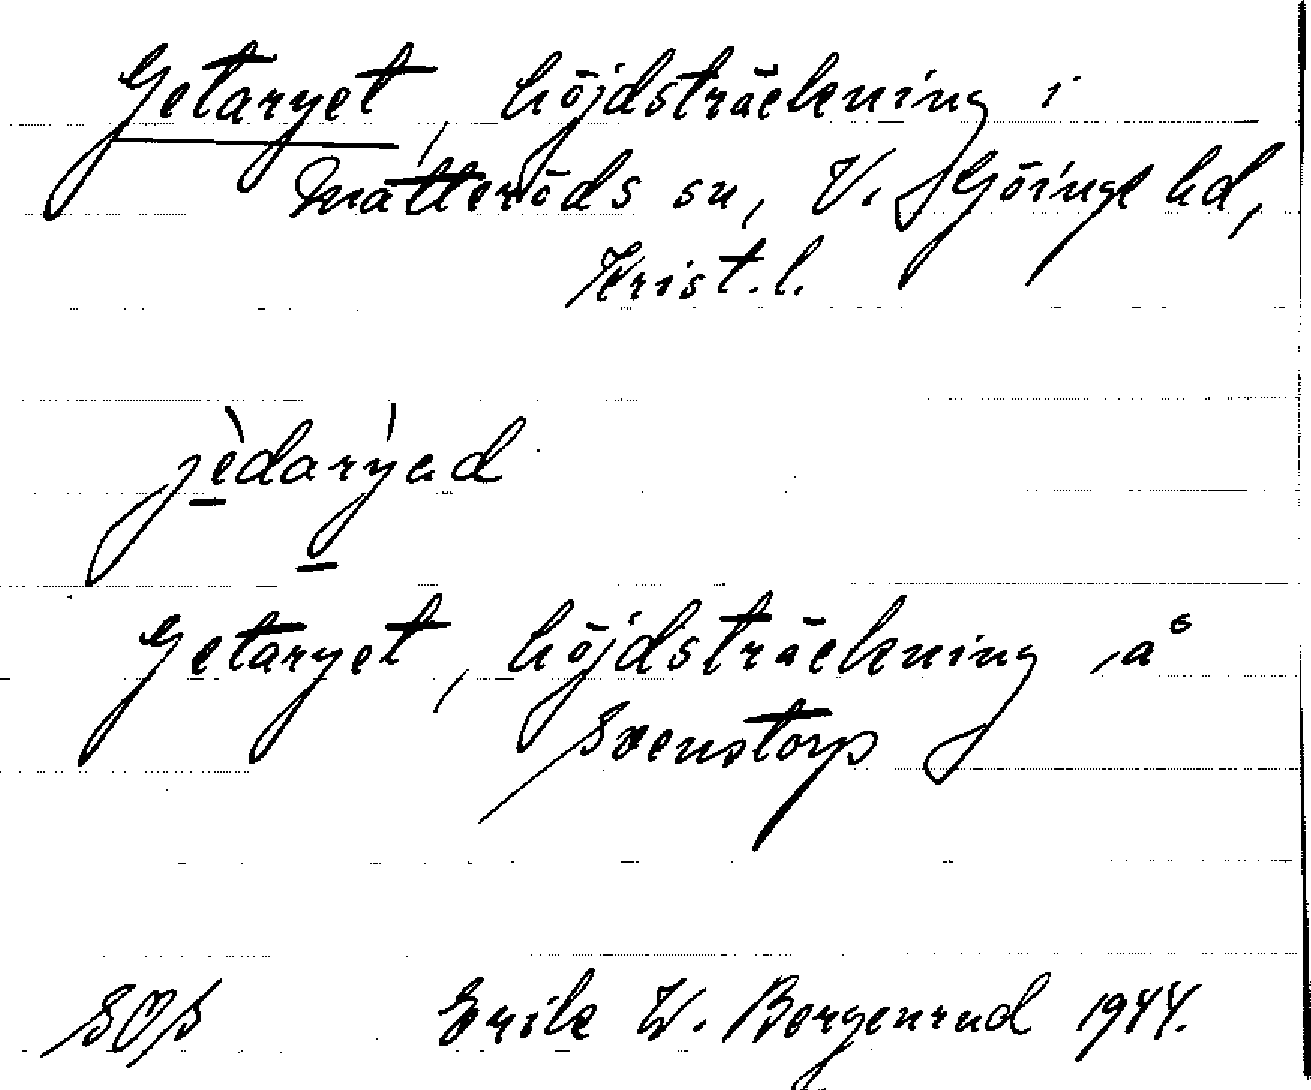 Getaryet, höjdsträckning i
Matteröds sn, V. Göinge hd,
Krist. l.
jèdarýad
Getaryet, höjdsträckning å
Svenstorp
SOS Erik W. Bergenrud 1944.